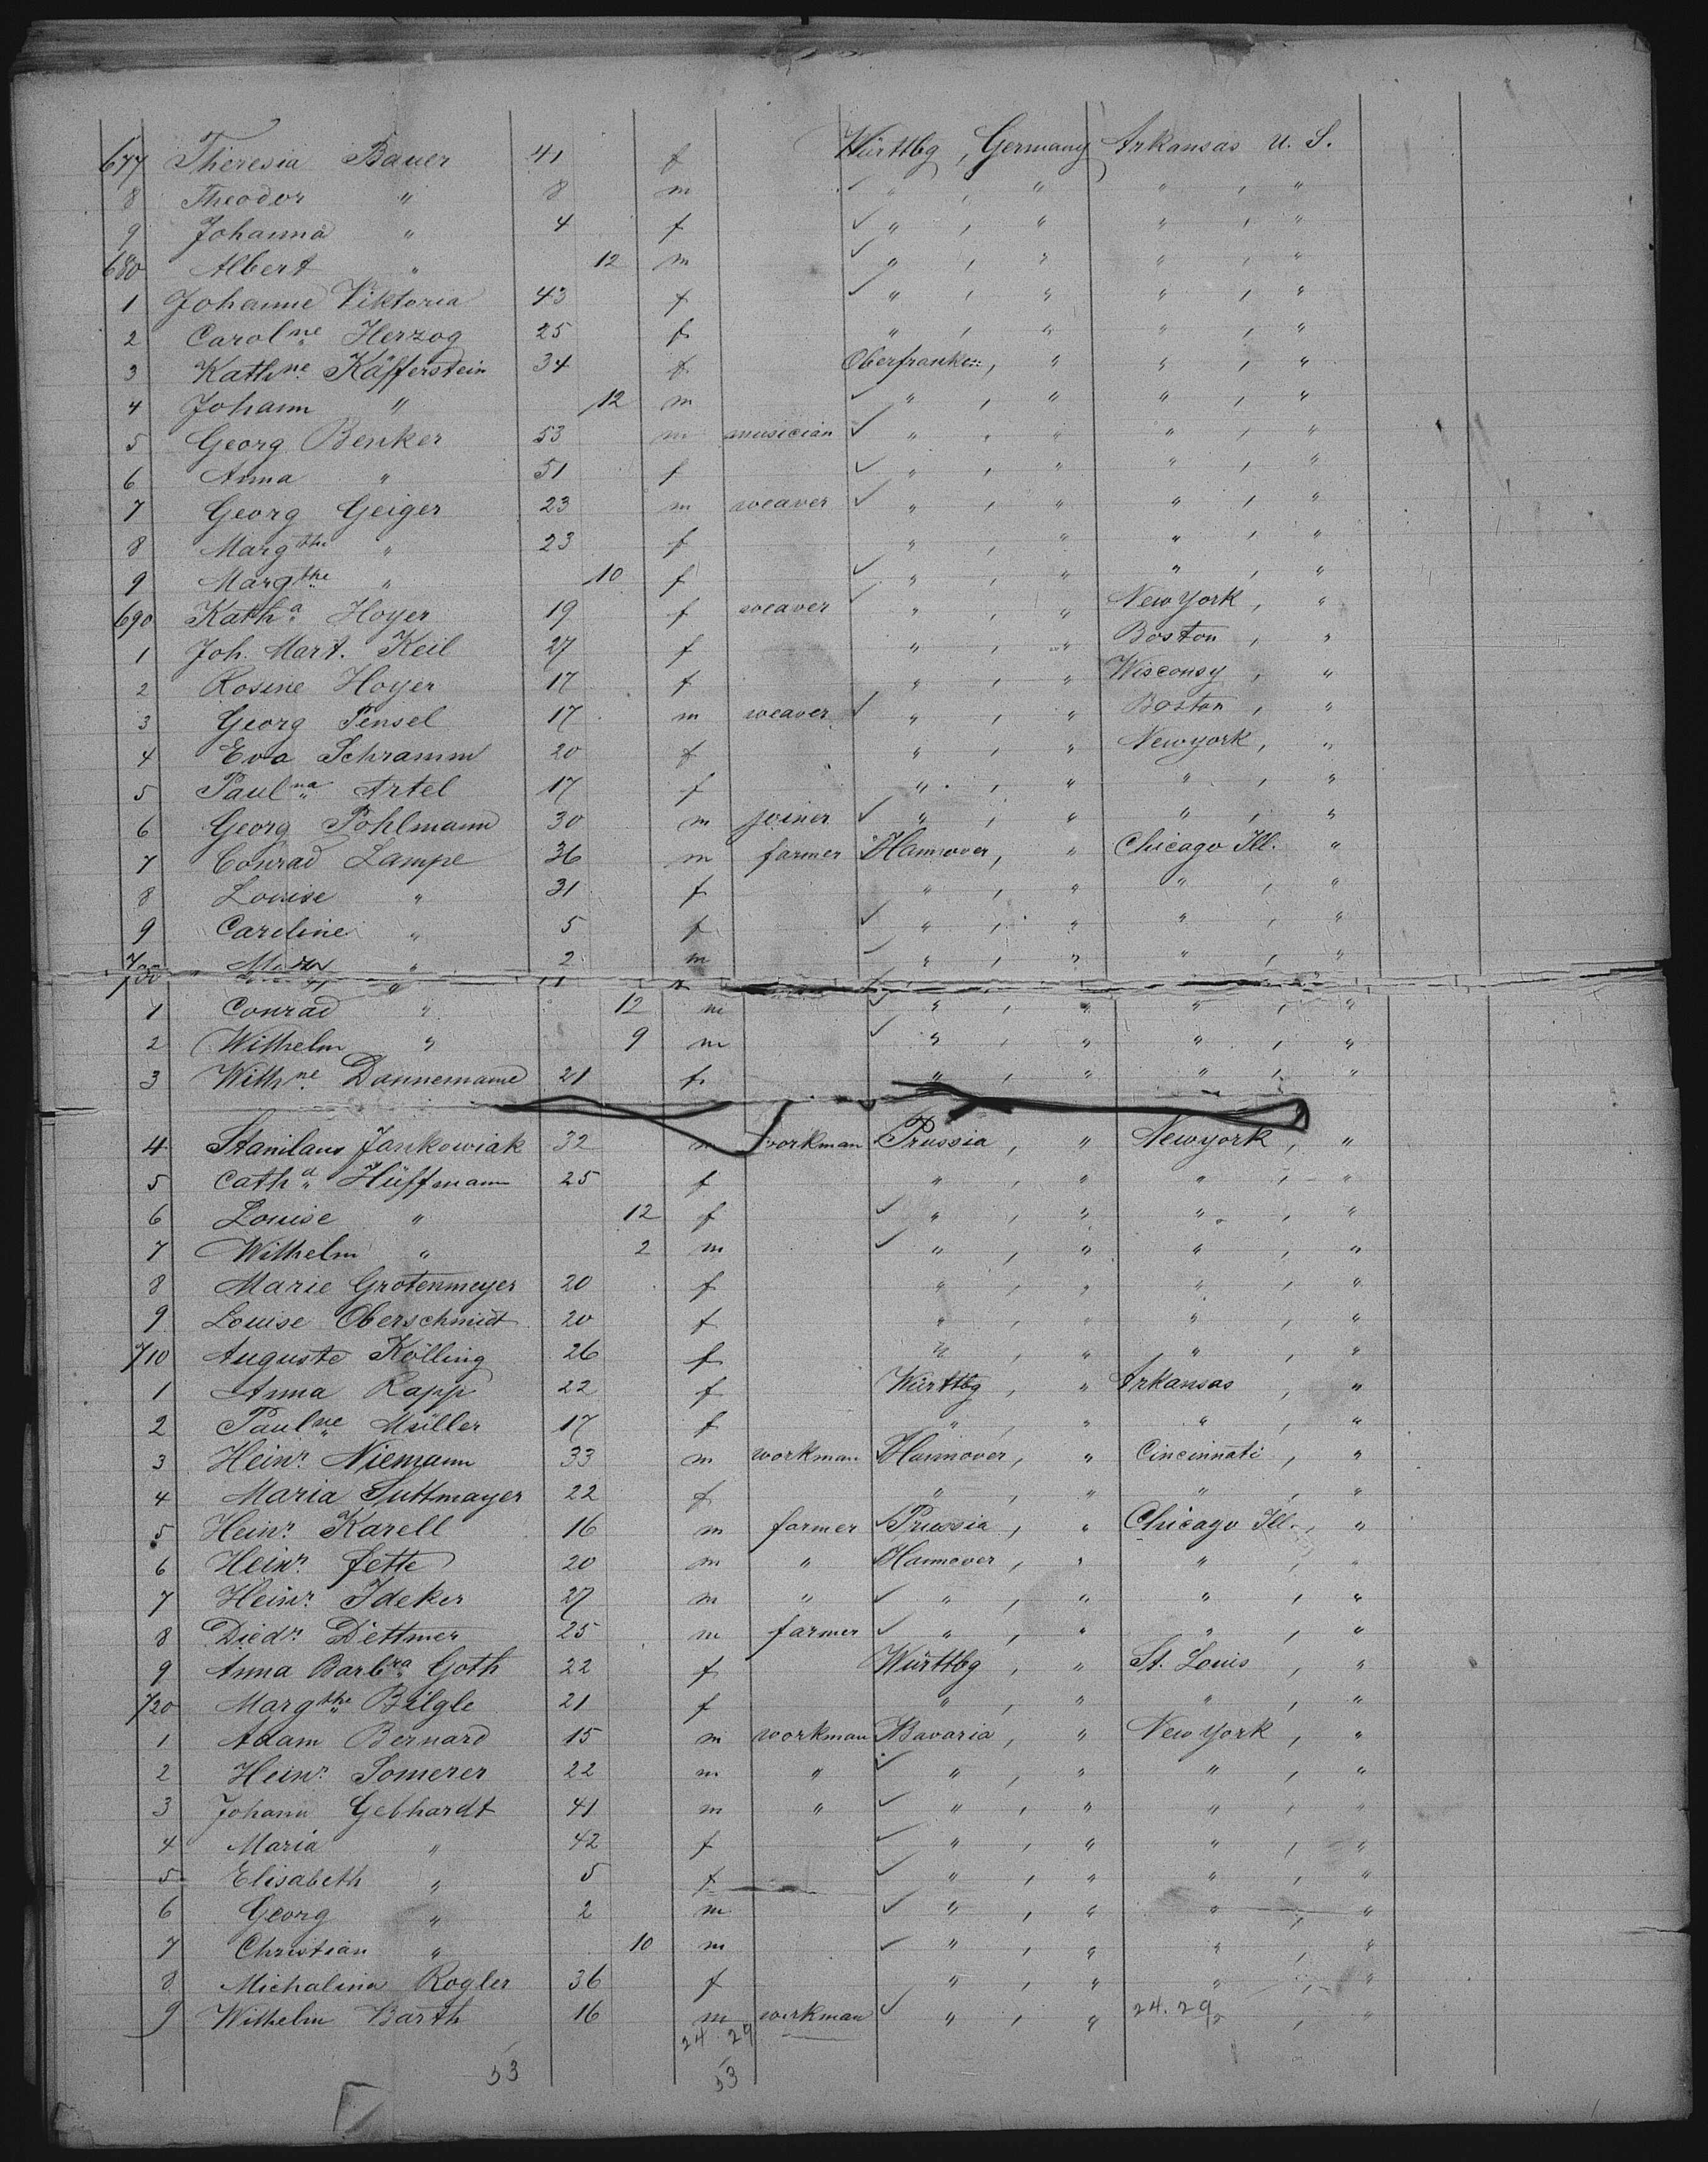 677 Theresia Bauer 41 f Württbg, Germany Arkansas U. S.
8 Theodor " 8 m ✓ " , " " , "
9 Johanna " 4 f ✓ " , " " , "
680 Albert " 12 m ✓ " , " " , "
1 Johanne Viktoria 43 f ✓ " , " " , "
2 Carolne Herzog 25 f " , " " , "
3 Kathne Käfferstein 34 f Oberfranken, " " , "
4 Johann " 12 m ✓ " , " " , "
5 Georg Benker 53 m musician ✓ " , " " , "
6 Anna " 51 f ✓ " , " " , "
7 Georg Geiger 23 m weaver ✓ " , " " , "
8 Margthe " 23 f " , " " , "
9 Margthe " 10 f ✓ " , " " , "
690 Katha Hoyer 19 f weaver ✓ " , " New York, "
1 Joh. Mart. Keil 27 f " , " Boston, "
2 Rosine Hoyer 17 f " , " Wisconsy, "
3 Georg Pensel 17 m weaver ✓ " , " Boston, "
4 Eva Schramm 20 f " , " Newyork, "
5 Paulna Artel 17 f " , " " , "
6 Georg Pohlmann 30 m joiner ✓ " , " " , "
7 Conrad Lampe 36 m farmer Hannover, " Chicago Ill. "
8 Louise " 31 f " , " " , "
9 Caroline " 5 f ✓ " , " " , "
700 " 2 m ✓ " , " " , "
1 Conrad " 12 m ✓ " , " " , "
2 Wilhelm " 9 m ✓ " , " " , "
3 Wilhne Dannemann 21 f " , " " , "
4 Stanilaus Jankowiak 32 m workman Prussia, " Newyork, "
5 Catha Hüffmann 25 f " , " " , "
6 Louise " 12 f ✓ " , " " , "
7 Wilhelm " 2 m ✓ " , " " , "
8 Marie Grotenmeyer 20 f " , " " , "
9 Louise Oberschmidt 20 f " , " " , "
710 Auguste Kölling 26 f " , " " , "
1 Anna Rapp 22 f Württbg, " Arkansas, "
2 Paulne Müller 17 f " , " " , "
3 Heinr. Niemann 33 m workman Hannover, " Cincinnati, "
4 Maria Suttmayer 22 f " , " " , "
5 Heinr. Karell 16 m farmer Prussia, " Chicago Ill., "
6 Heinr. Fette 20 m " Hannover, " " , "
7 Heinr. Ideker 27 m " ✓ " , " " , "
8 Diedr. Dettmer 25 m farmer ✓ " , " " , "
9 Anna Barbra Goth 22 f Württbg, " St. Louis, "
720 Margthe Bilgle 21 f " , " " , "
1 Adam Bernard 15 m workman Bavaria, " New York, "
2 Heinr. Somerer 22 m " ✓ " , " " , "
3 Johann Gebhardt 41 m " ✓ " , " " , "
4 Maria " 42 f ✓ " , " " , "
5 Elisabeth " 5 f ✓ " , " " , "
6 Georg " 2 m ✓ " , " " , "
7 Christian " 10 m ✓ " , " " , "
8 Michalina Rogler 36 f " , " " , "
9 Wilhelm Barth 16 m workman ✓ " , " " , "
24. 29
24 29
53 53